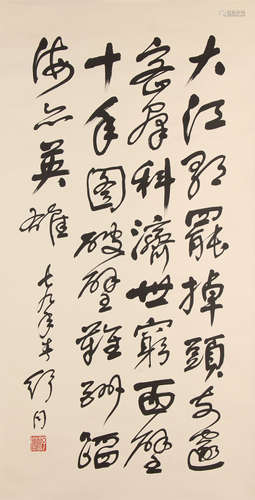 大江歌罷掉頭东邃
密群科濟世窮面壁
十年图破壁難酬蹈
海亦英雄
七九年 舒同